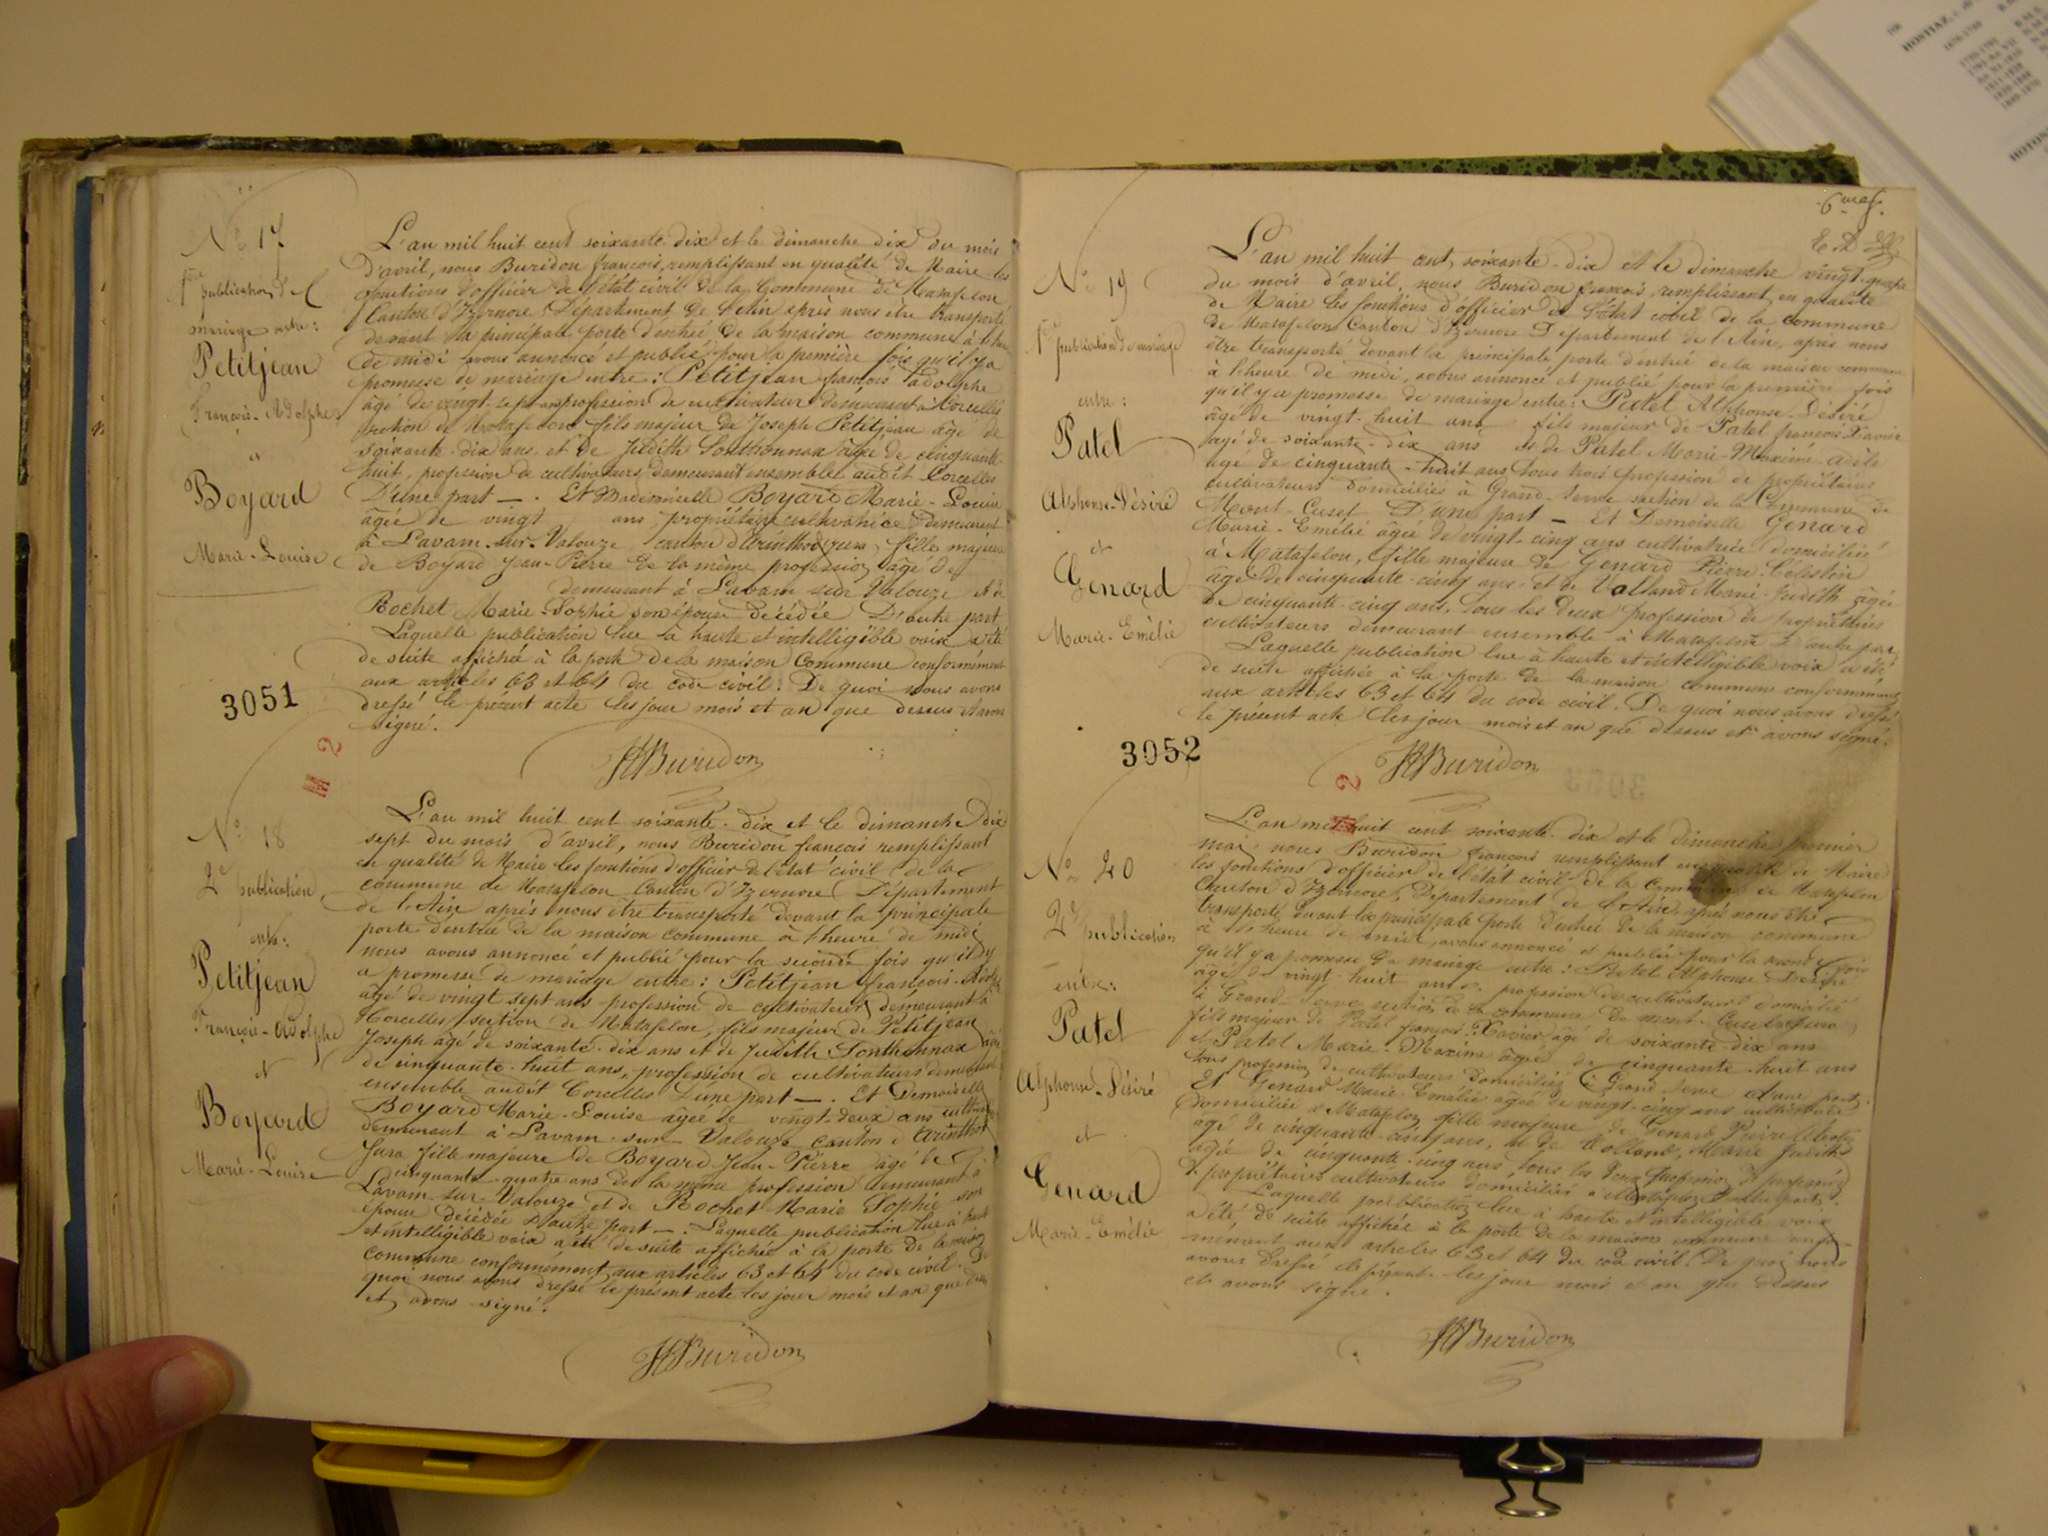 N° 17
1re publication de
mariage entre :
Petitjean
François-Adolphe
et
Boyard
Marie-Louise
L'an mil huit cent soixante-dix et le dimanche dix du mois
d'avril, nous Buridon françois, remplissant en qualité de Maire les
fonctions d'officier de l'état civil de la Commune de Matafelon
Canton d'Izernore, Département de l'Ain après nous être transporté
devant la principale porte d'entrée de la maison commune à l'heure
de midi avons annoncé et publié pour la première fois qu'il y a
promesse de mariage entre : Petitjean françois adolphe
âgé de vingt-sept ans profession de cultivateur demeurant à Corcelles
section de Matafelon fils majeur de Joseph Petitjean âgé de
soixante-dix ans et de Judith Sonthonnax âgée de cinquante-
huit, profession de cultivateurs demeurant ensemble audit Corcelles
D'une part —. Et Mademoiselle Boyard Marie-Louise
âgée de vingt ans, propriétaire cultivatrice demeurant
à Lavam-sur-Valouze, canton d'Arinthod Jura, fille majeure
de Boyard Jean-Pierre de la même profession âgé de
demeurant à Lavam sur Valouze et de
Rochet Marie-Sophie son épouse décédée D'autre part
Laquelle publication lue à haute et intelligible voix a été
de suite affichée à la porte de la maison Commune conformément
aux articles 63 et 64 du code civil. De quoi nous avons
dressé le présent acte les jour mois et an que dessus et avons
signé.
3051
Buridon
N° 18
2e publication
entre :
Petitjean
François-adolphe
et
Boyard
Marie-Louise
L'an mil huit cent soixante-dix et le dimanche dix
sept du mois d'avril, nous Buridon françois remplissant
en qualité de Maire les fonctions d'officier de l'état civil de la
commune de Matafelon Canton d'Izernore Département
de l'Ain après nous être transporté devant la principale
porte d'entrée de la maison commune à l'heure de midi
nous avons annoncé et publié pour la seconde fois qu'il y
a promesse de mariage entre : Petitjean françois-Adolphe
âgé de vingt sept ans profession de cultivateur demeurant à
Corcelles section de Matafelon, fils majeur de Petitjean
Joseph âgé de soixante-dix ans et de Judith Sonthonnax âgée
de cinquante-huit ans, profession de cultivateurs demeurant
ensemble audit Corcelles D'une part —. Et Demoiselle
Boyard Marie-Louise âgée de vingt-deux ans cultivatrice
demeurant à Lavam-sur-Valouze Canton d'Arinthod
Jura fille majeure de Boyard Jean-Pierre âgé de
cinquante-quatre ans de la même profession demeurant à
Lavam-sur-Valouze et de Rochet Marie Sophie son
épouse décédée D'autre part —. Laquelle publication lue à haute
et intelligible voix a été de suite affichée à la porte de la maison
commune conformément aux articles 63 et 64 du code civil. De
quoi nous avons dressé le présent acte les jour mois et an que dessus
et avons signé.
Buridon
N° 19
1re publication de mariage
entre :
Patel
Alphonse-Désiré
et
Genard
Marie-Emélie
L'an mil huit cent soixante-dix et le dimanche vingt-quatre
du mois d'avril, nous Buridon françois, remplissant en qualité
de Maire les fonctions d'officier de l'état civil de la commune
de Matafelon Canton d'Izernore Département de l'Ain, après nous
être transporté devant la principale porte d'entrée de la maison commune
à l'heure de midi, avons annoncé et publié pour la première fois
qu'il y a promesse de mariage entre : Patel Alphonse-Désiré
âgé de vingt-huit ans fils majeur de Patel françois Xavier
âgé de soixante-dix ans et de Patel Marie-Maxime adèle
âgée de cinquante-huit ans tous trois profession de propriétaires
cultivateurs domiciliés à Grand-Serve section de la Commune de
Mont-Cuset D'une part — Et Demoiselle Genard
Marie-Emélie âgée de vingt-cinq ans cultivatrice domiciliée
à Matafelon, fille majeure de Genard Pierre-Célestin
âgé de cinquante-cinq ans, et de Volland Marie-Judith âgée
de cinquante-cinq ans, tous les deux profession de propriétaires
cultivateurs demeurant ensemble à Matafelon D'autre part
Laquelle publication lue à haute et intelligible voix a été
de suite affichée à la porte de la maison commune conformément
aux articles 63 et 64 du code civil. De quoi nous avons dressé
le présent acte les jour mois et an que dessus et avons signé.
3052
Buridon
N° 20
2e publication
entre :
Patel
Alphonse-Désiré
et
Genard
Marie-Emélie
L'an mil huit cent soixante-dix et le dimanche premier
mai nous Buridon françois remplissant en qualité de Maire
les fonctions d'officier de l'état civil de la Commune de Matafelon
Canton d'Izernore, Département de l'Ain, après nous être
transporté devant la principale porte d'entrée de la maison commune
à l'heure de midi, avons annoncé et publié pour la seconde fois
qu'il y a promesse de mariage entre : Patel Alphonse Désiré
âgé de vingt-huit ans, profession de cultivateur domicilié
à Grand-Serve section de la commune de mont-Cuset
fils majeur de Patel françois-Xavier âgé de soixante-dix ans
et Patel Marie-Maxime âgée de cinquante-huit ans
tous profession de cultivateurs domiciliés à Grand-Serve d'une part.
Et Genard Marie-Emélie âgée de vingt-cinq ans cultivatrice
domiciliée à Matafelon, fille majeure de Genard Pierre Célestin
âgé de cinquante-cinq ans, et de Volland, Marie Judith
âgée de cinquante-cinq ans, tous les deux profession
de propriétaires cultivateurs domiciliés à Matafelon D'autre part.
Laquelle publication lue à haute et intelligible voix
a été de suite affichée à la porte de la maison commune confor-
mément aux articles 63 et 64 du code civil. De quoi nous
avons dressé le présent les jour mois et an que dessus
et avons signé.
Buridon
HOSTIAZ